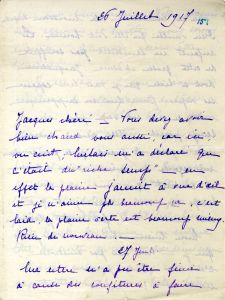 26 Juillet 1917
Jacques chéri — Vous devez avoir
bien chaud vous aussi, car ici
on cuit, m'a déclaré que
c'était du temps — en
effet la plaine jaunit à vue d'œil
et je n'aime pas beaucoup ça, c'est
laid, la plaine verte est beaucoup mieux
Rien de nouveau.
27 Juillet
Ma lettre n'a pu être finie
à cause des confitures à faire